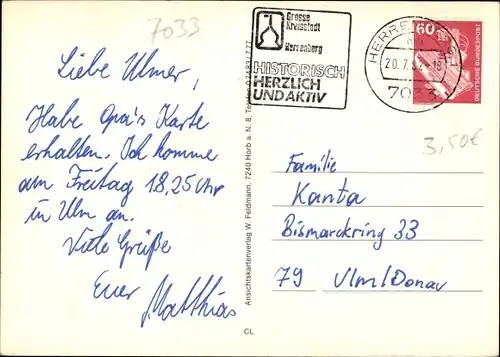 7033
Liebe Ulmer,
Habe Opa's Karte
erhalten. Ich komme
am Freitag 18,25 Uhr
in Ulm an.
Viele Grüße
Euer Matthias
Ansichtskartenverlag W. Feldmann, 7240 Horb a. N. 8, Telefon
CL
Grosse
Kreisstadt
Herrenberg
HISTORISCH
HERZLICH
UND AKTIV
20.7.
7033
60
DEUTSCHE BUNDESPOST
3,50€
Familie
Kanta
Bismarckring 33
79 Ulm/Donau